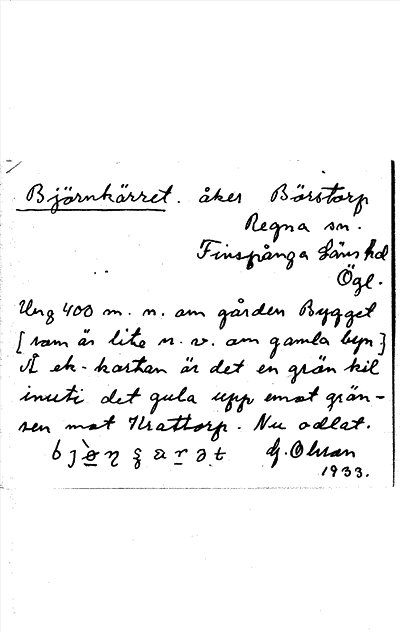 Björnkärret. åker Börstorp
Regna sn.
Finspånga Läns hd
Ögl.
Ung 400 m. n. om gården Bygget
[som är lite n. v. om gamla byn]
Å ek-kartan är det en grön kil
inuti det gula upp emot grän-
sen mot Krattorp. Nu odlat.
G. Olsson
1933.